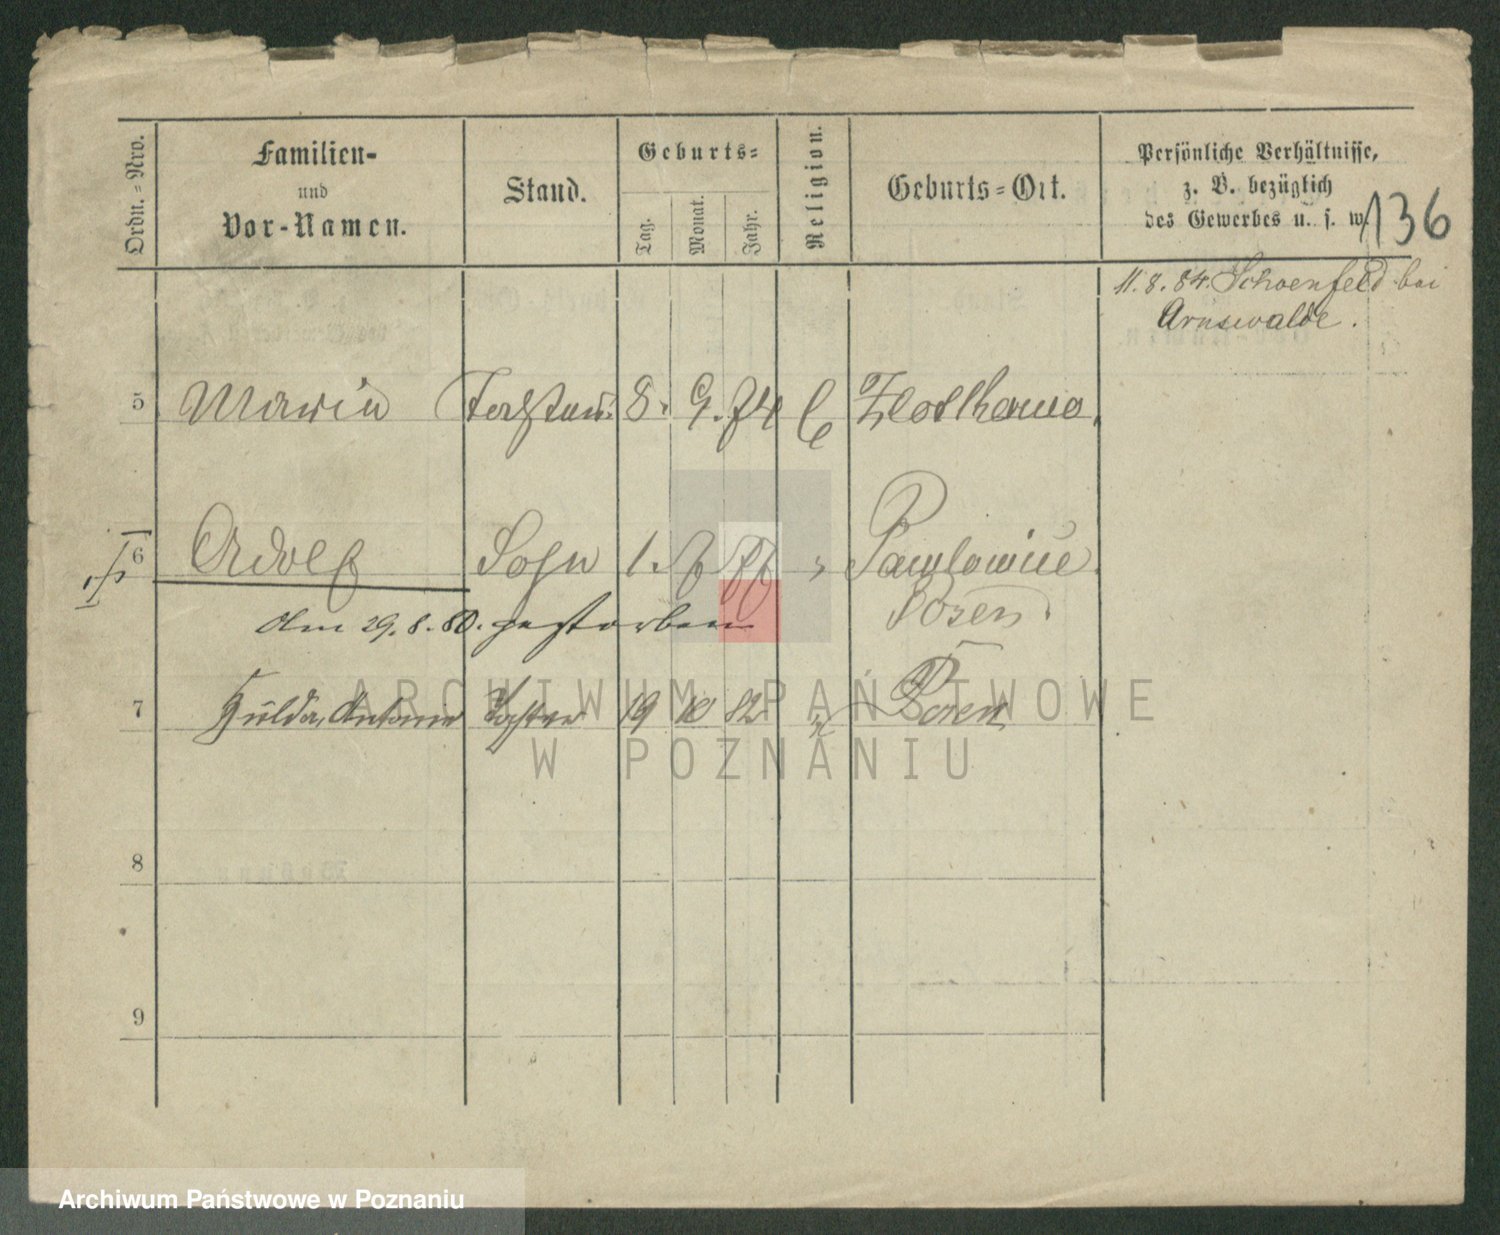 Ordn.=Nro.
Familien-
und
Vor-Namen.
Stand.
Geburts=
Tag.
Monat.
Jahr.
Religion.
Geburts=Ort.
Persönliche Verhältnisse,
z. B. bezüglich
des Gewerbes u. s. w.
136
11. 8. 84. Schoenfeld bei
Arnswalde.
5 Marie 8. 9. 74
6 Adolf Sohn 1. 7 77 Pawlowice
Posen.
den 29. 8. 80. gestorben
7 Hulda, Tochter 19 10 82 Posen
8
9
ARCHIWUM PAŃSTWOWE
W POZNANIU
Archiwum Państwowe w Poznaniu